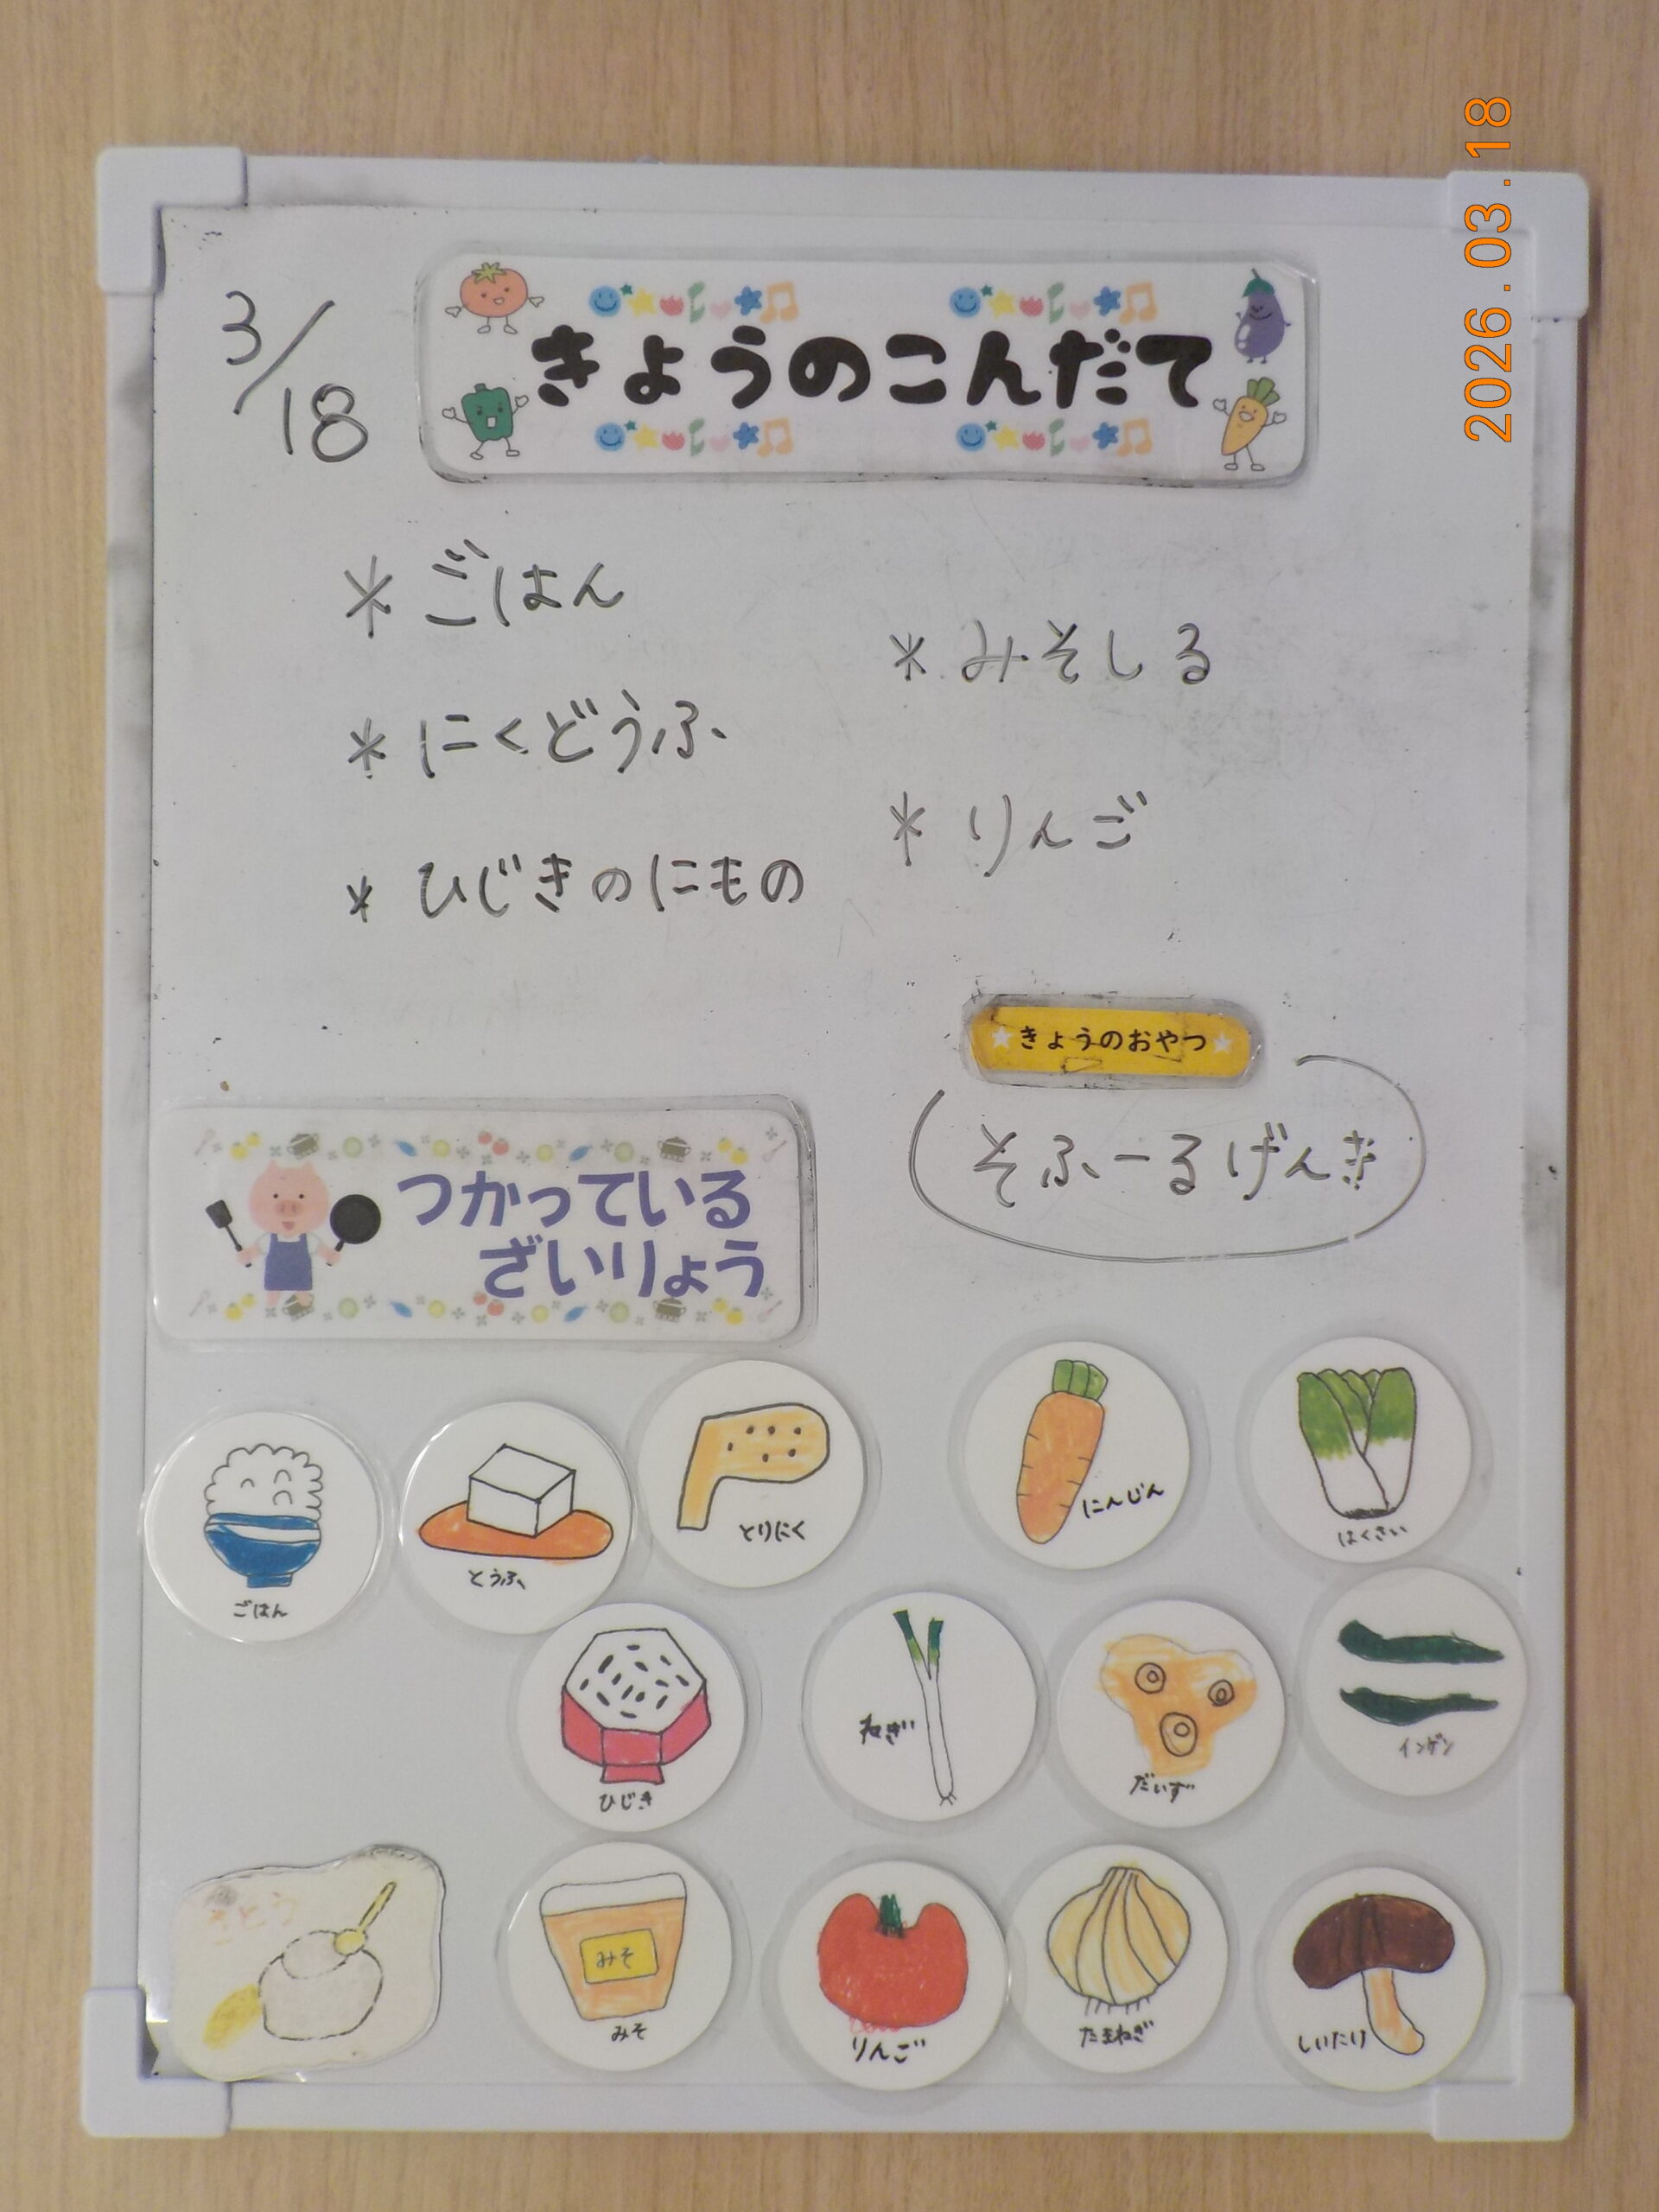 2026.03.18
3/18
きょうのこんだて
* ごはん
* にくどうふ
* ひじきのにもの
* みそしる
* りんご
きょうのおやつ
そふーるげんき
つかっている
ざいりょう
ごはん
とうふ
とりにく
にんじん
はくさい
ひじき
ねぎ
だいず
インゲン
さとう
みそ
みそ
りんご
たまねぎ
しいたけ